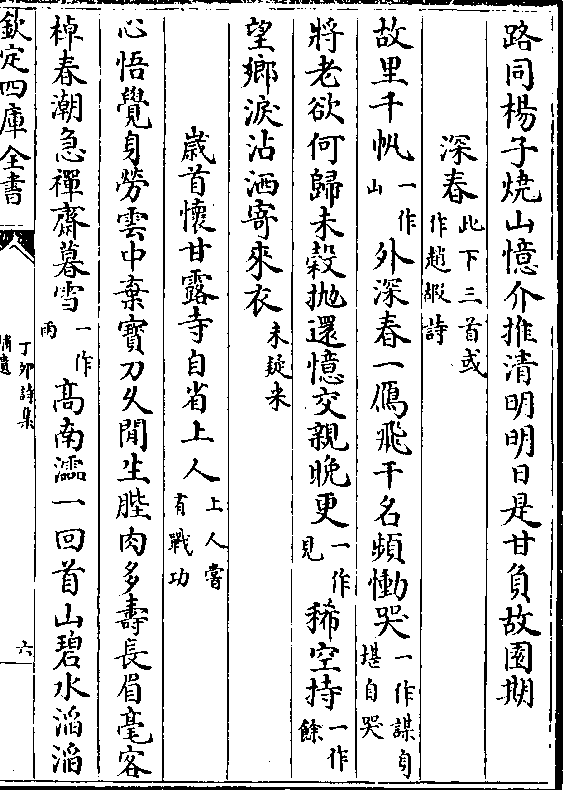 路同楊子燒山憶介推清明明日是甘負故園期
深春此下三首或作趙嘏詩
故里千帆一作山外深春一鴈飛干名頻慟哭一作謀身堪自哭
將老欲何歸未穀抛還憶交親晚更一作見稀空持一作餘
望鄉淚沾洒寄來衣未疑米
歲首懷甘露寺自省上人上人嘗有戰功
心悟覺身勞雲中棄寶刀乆閒生髀肉多壽長眉毫客
棹春潮急禪齋暮雪一作雨髙南濡一回首山碧水滔滔
欽定四庫全書
丁卯詩集補遺
六